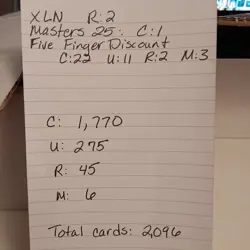 XLN R:2
Masters 25: C:1
Five Finger Discount
C:22 U:11 R:2 M:3
C: 1,770
U: 275
R: 45
M: 6
Total cards: 2,096